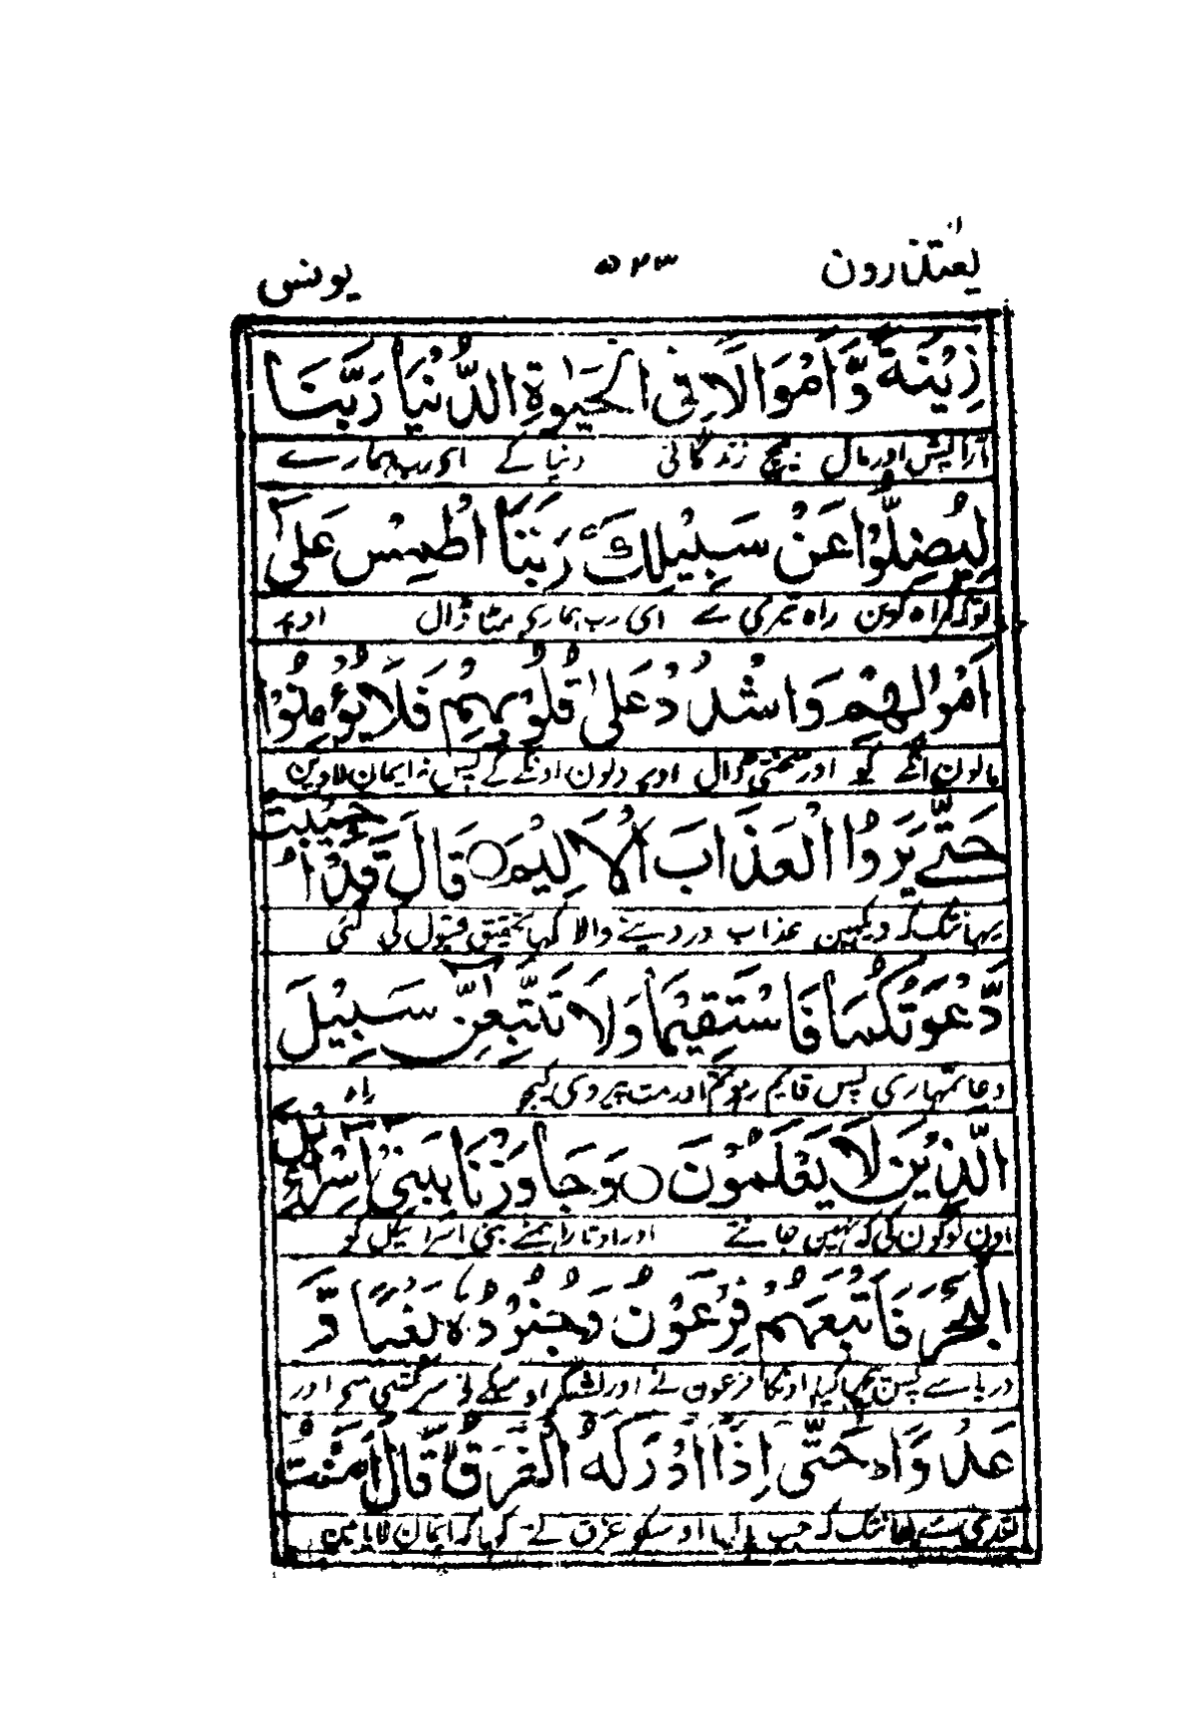 یعتذرون ۵۲۳ یونس
زِيْنَةً وَّاَمْوَالًا فِی الْحَیٰوةِ الدُّنْیَا رَبَّنَا
آرایش اور مال بیچ زندگانی دنیا کے ای رب ہمارے
لِیُضِلُّوْا عَنْ سَبِیْلِكَ رَبَّنَا اطْمِسْ عَلٰٓی
توکہ گمراہ کرین راہ تیری سے ای رب ہماری مٹا ڈال اوپر
اَمْوَالِهِمْ وَاشْدُدْ عَلٰی قُلُوْبِهِمْ فَلَا یُؤْمِنُوْا
مالون انکے کو اور سختی ڈال اوپر دلون اونکے کے پس نہ ایمان لاوین
حَتّٰی یَرَوُا الْعَذَابَ الْاَلِیْمَ ○ قَالَ قَدْ اُجِیْبَتْ
یہانتک کہ دیکہین عذاب درد دینے والا کہا تحقیق قبول کی گئی
دَّعْوَتُكُمَا فَاسْتَقِیْمَا وَلَا تَتَّبِعٰٓنِّ سَبِیْلَ
دعا تمہاری پس قایم رہو تم اور مت پیروی کیجو راہ
الَّذِیْنَ لَا یَعْلَمُوْنَ ○ وَجَاوَزْنَا بِبَنِیْ اِسْرَآءِیْلَ
اون لوگون کی کہ نہین جانتے اور اوتارا ہمنے بنی اسرائیل کو
الْبَحْرَ فَاَتْبَعَهُمْ فِرْعَوْنُ وَجُنُوْدُهٗ بَغْیًا وَّ
دریا سے پس پیچہا کیا اونکا فرعون نے اور لشکر اوسکے نے سرکشی سے اور
عَدْوًا ؕ حَتّٰۤی اِذَاۤ اَدْرَكَهُ الْغَرَقُ قَالَ اٰمَنْتُ
تعدی سے یہانتک کہ جب پالیا اوسکو غرق نے کہا کہ ایمان لایا مین